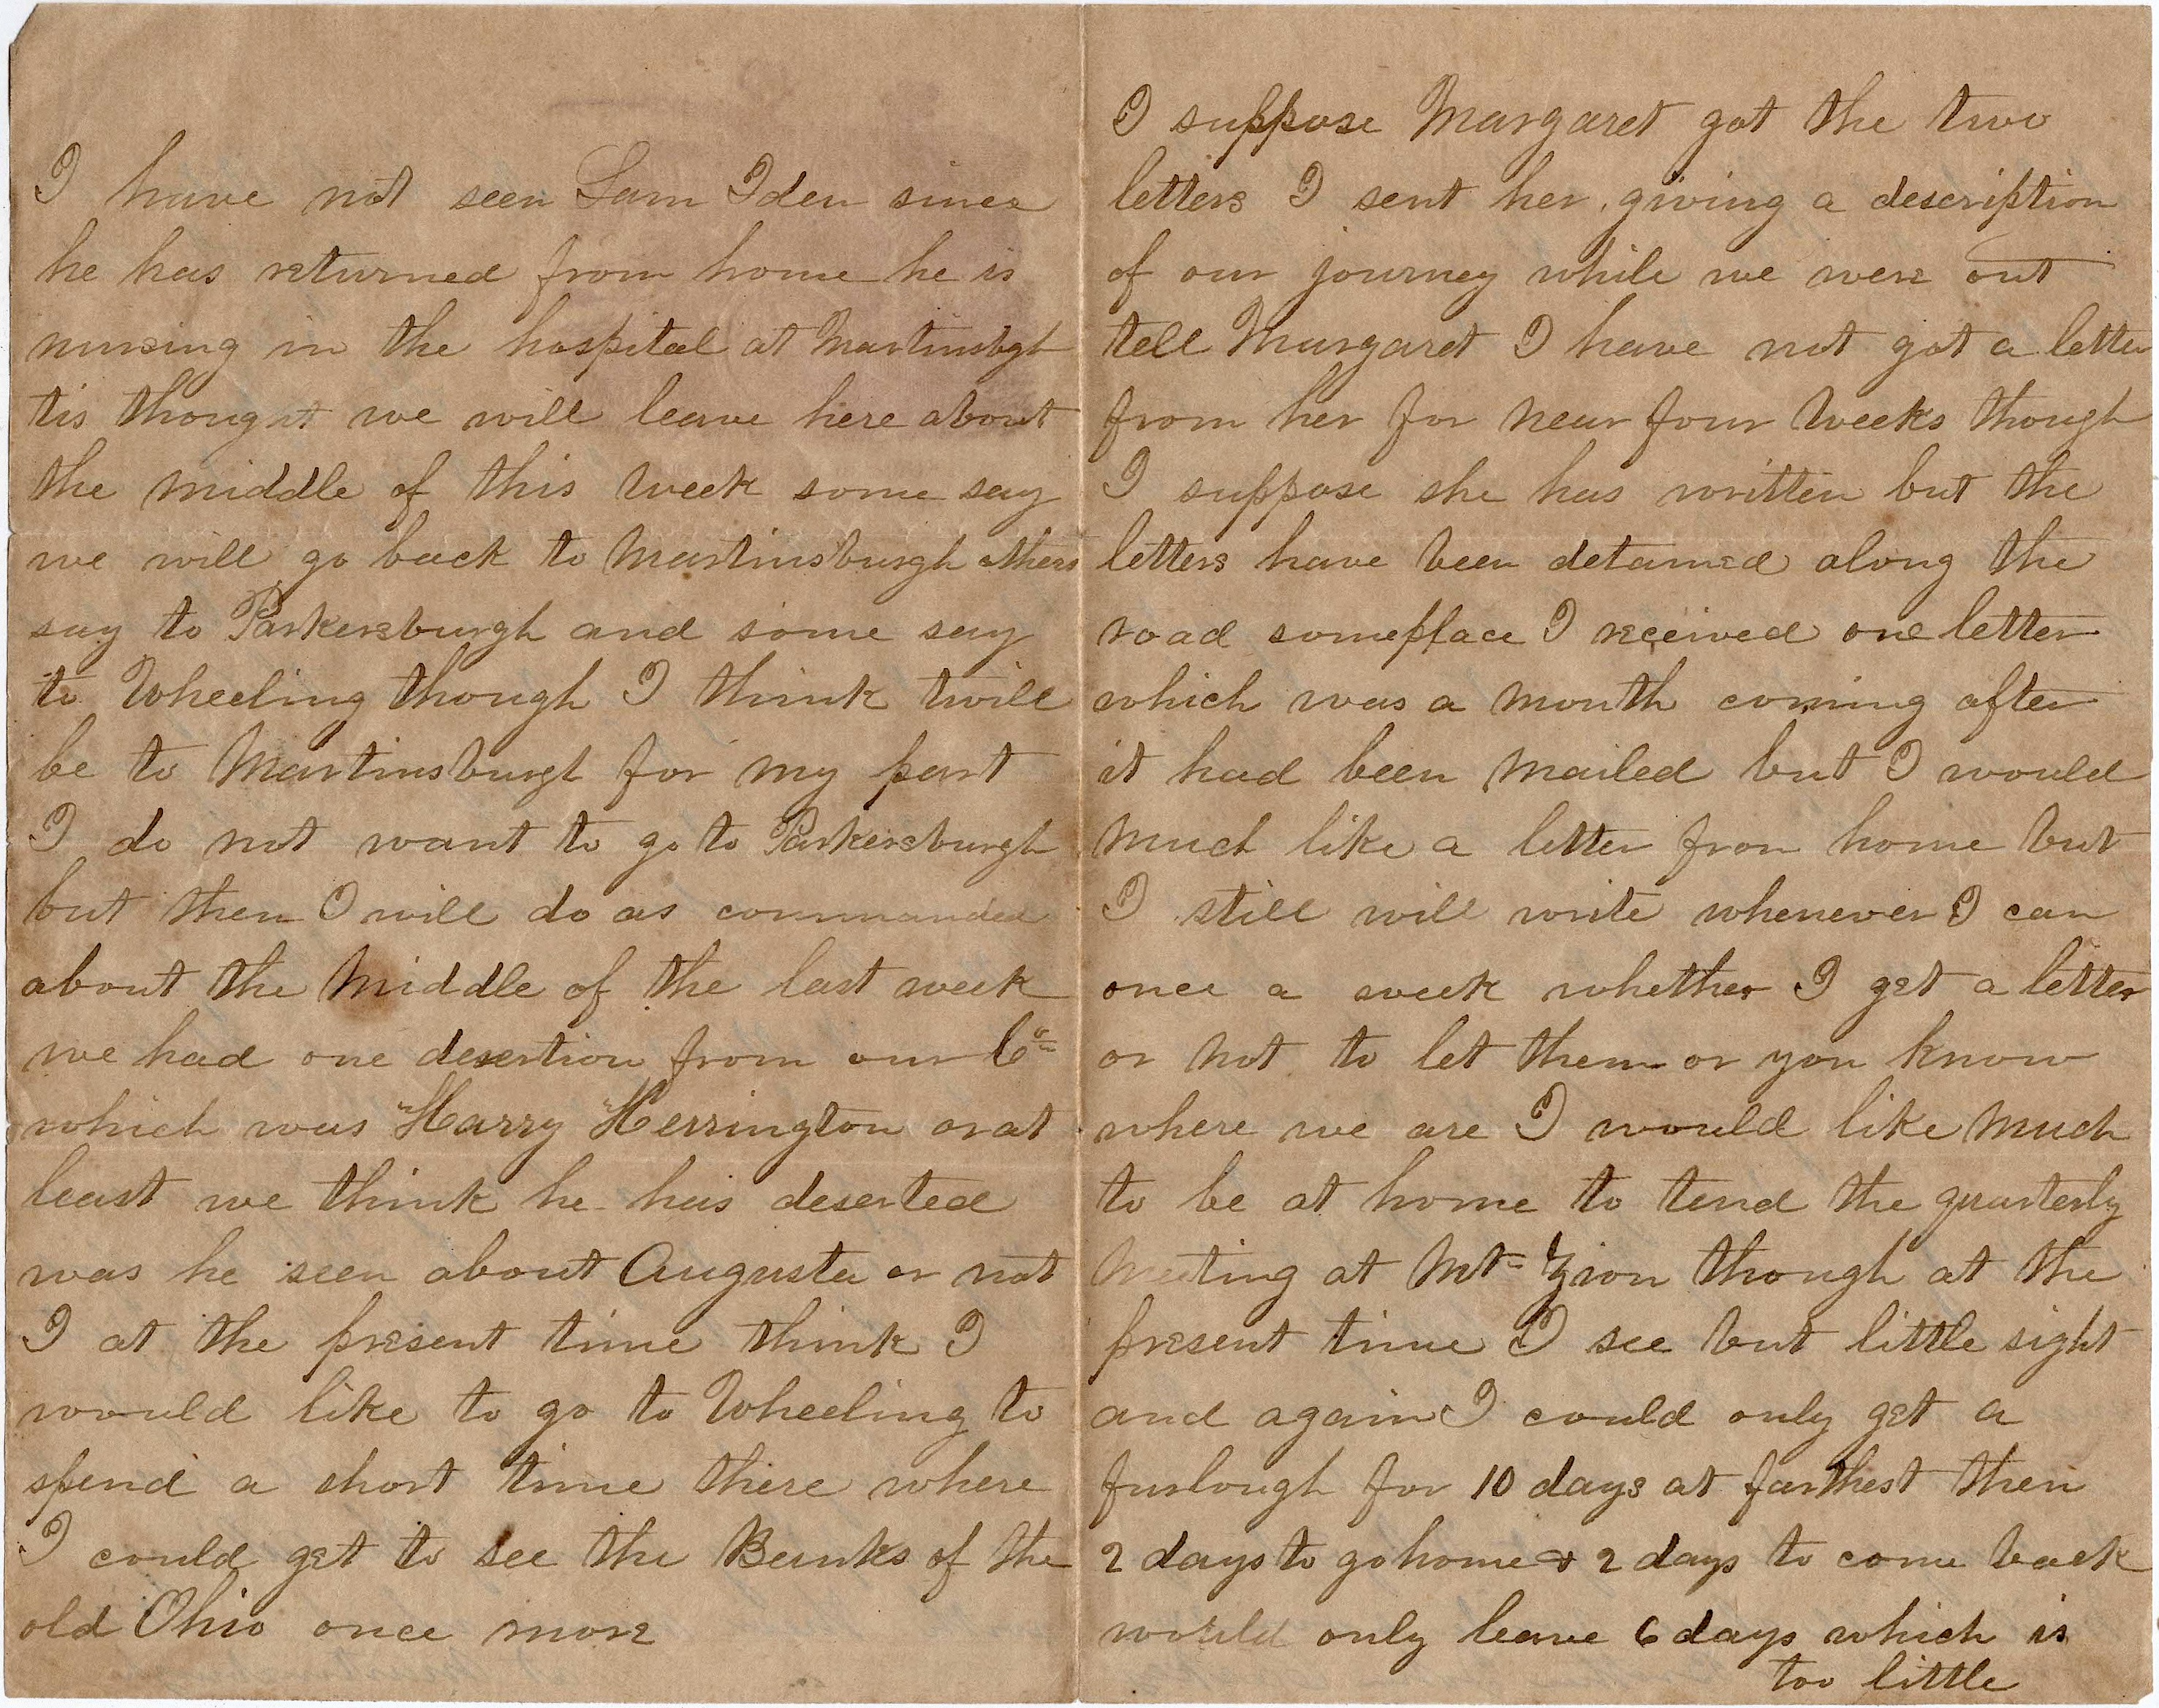 I have not seen Sam Iden since
he has returned from home he is
nursing in the hospital at Martinsbgh
tis thought we will leave here about
the middle of this week some say
we will go back to Martinsburgh others
say to Parkersburgh and some say
to Wheeling though I think twill
be to Martinsburgh for my part
I do not want to go to Parkersburgh
but then I will do as commanded
about the middle of the last week
we had one desertion from our Co
which was Harry Herrington or at
least we think he has deserted
was he seen about Augusta or not
I at the present time think I
would like to go to Wheeling to
spend a short time there where
I could get to see the Banks of the
old Ohio once more
I suppose Margaret got the two
letters I sent her, giving a description
of our journey while we were out
tell Margaret I have not got a letter
from her for near four weeks though
I suppose she has written but the
letters have been detained along the
road someplace I received one letter
which was a month coming after
it had been mailed but I would
much like a letter from home but
I still will write whenever I can
once a week whether I get a letter
or not to let them or you know
where we are I would like much
to be at home to tend the quarterly
Meeting at Mt Zion though at the
present time I see but little sight
and again I could only get a
furlough for 10 days at farthest then
2 days to go home & 2 days to come back
would only leave 6 days which is
too little